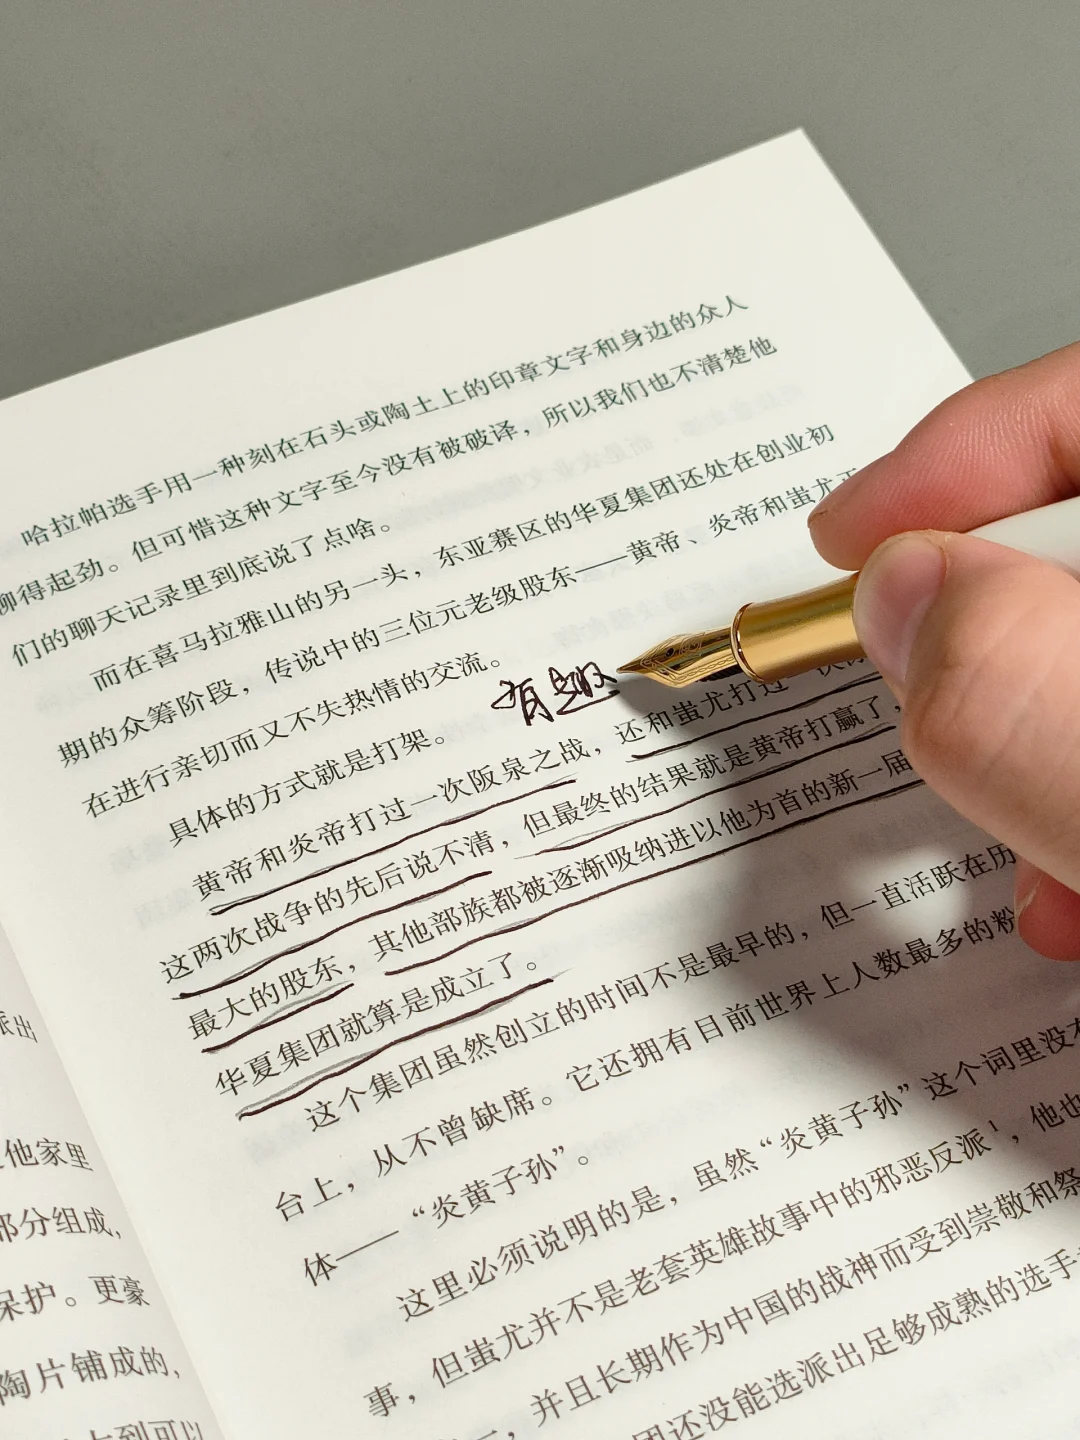 哈拉帕选手用一种刻在石头或陶土上的印章文字和身边的众人
聊得起劲。但可惜这种文字至今没有被破译，所以我们也不清楚他
们的聊天记录里到底说了点啥。
而在喜马拉雅山的另一头，东亚赛区的华夏集团还处在创业初
期的众筹阶段，传说中的三位元老级股东——黄帝、炎帝和蚩尤正
在进行亲切而又不失热情的交流。
具体的方式就是打架。
有趣
黄帝和炎帝打过一次阪泉之战，还和蚩尤打过一次
这两次战争的先后说不清，但最终的结果就是黄帝打赢了，
最大的股东，其他部族都被逐渐吸纳进以他为首的新一届
华夏集团就算是成立了。
这个集团虽然创立的时间不是最早的，但一直活跃在历
台上，从不曾缺席。它还拥有目前世界上人数最多的粉
体——“炎黄子孙”。
这里必须说明的是，虽然“炎黄子孙”这个词里没有
事，但蚩尤并不是老套英雄故事中的邪恶反派¹，他也
，并且长期作为中国的战神而受到崇敬和祭
团还没能选派出足够成熟的选手
派出
他家里
部分组成，
保护。更豪
陶片铺成的，
到可以